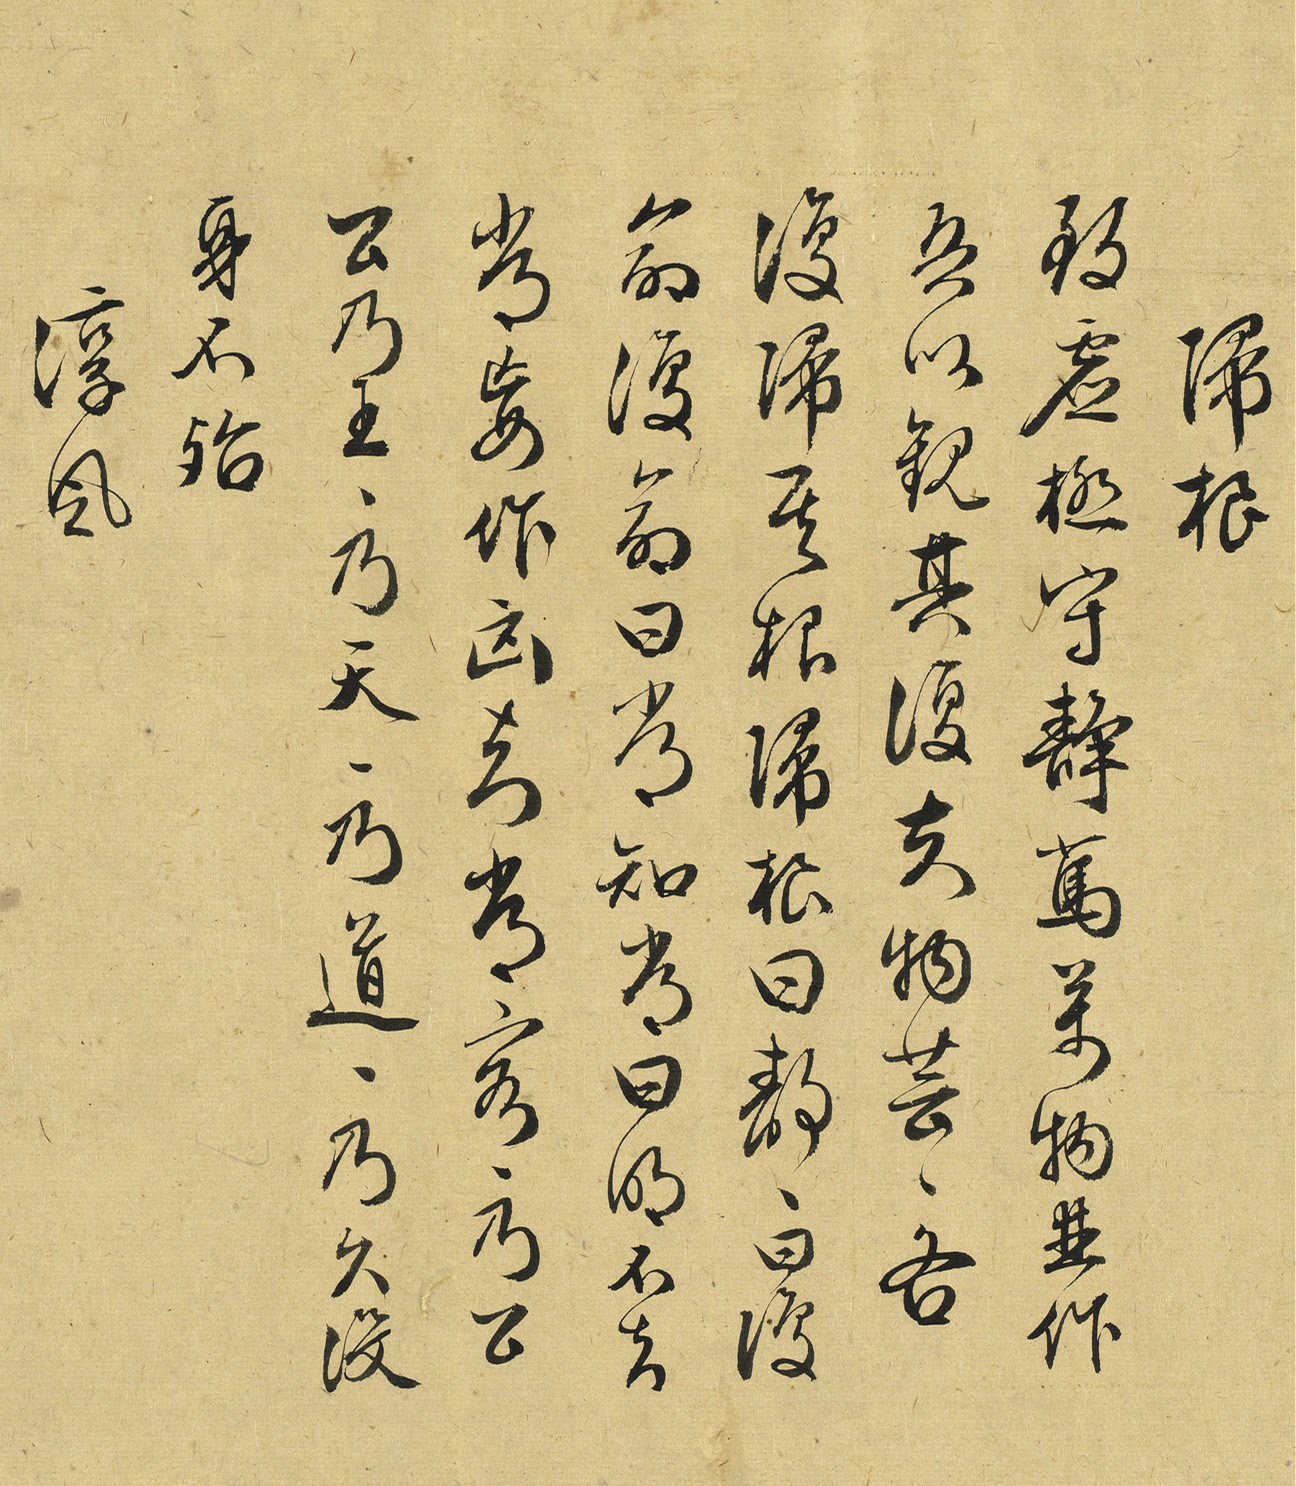 歸根
致虛極守靜篤萬物並作
吾以觀其復夫物芸〻各
復歸其根歸根曰靜〻曰復
命復命曰常知常曰明不知
常妄作凶知常容〻乃公
公乃王〻乃天〻乃道〻乃久沒
身不殆
淳風